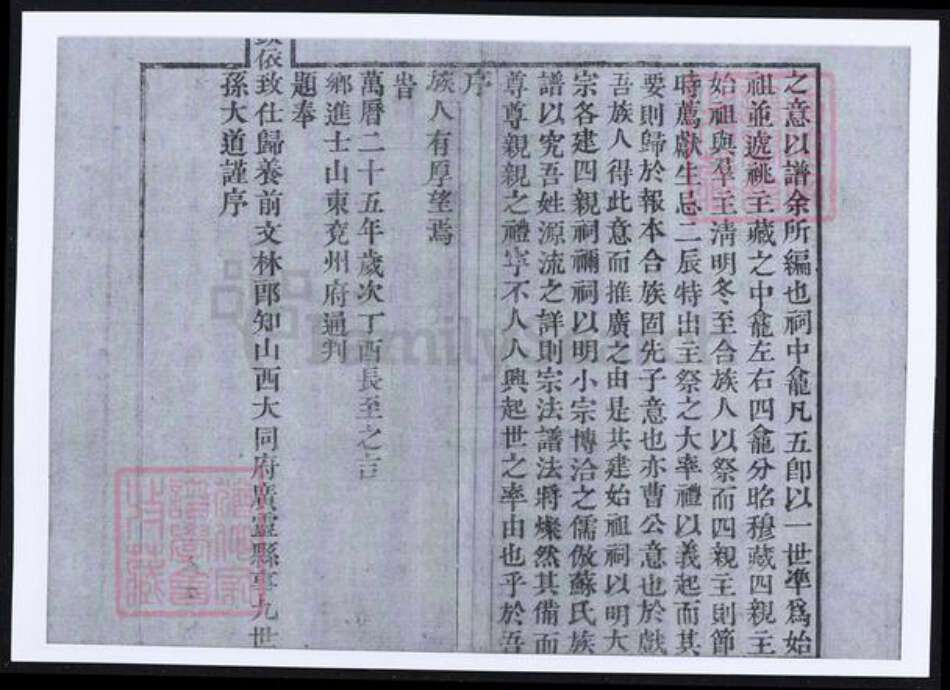 之意以譜余所編也祠中龕凡五卽以一世準爲始
祖並遞祧主藏之中龕左右四龕分昭穆藏四親主
始祖與羣主淸明冬至合族人以祭而四親主則節
時薦獻生忌二辰特出主祭之大率禮以義起而其
要則歸於報本合族固先子意也亦曹公意也於戲
吾族人得此意而推廣之由是共建始祖祠以明大
宗各建四親祠禰祠以明小宗博洽之儒倣蘇氏族
譜以究吾姓源流之詳則宗法譜法將燦然其備而
尊尊親親之禮寧不人人興起世之率由也乎於吾
序
族人有厚望焉
旹
萬曆二十五年歲次丁酉長至之吉
鄉進士山東兗州府通判
題奉
依致仕歸養前文林郎知山西大同府廣靈縣事九世
孫大道謹序
Family